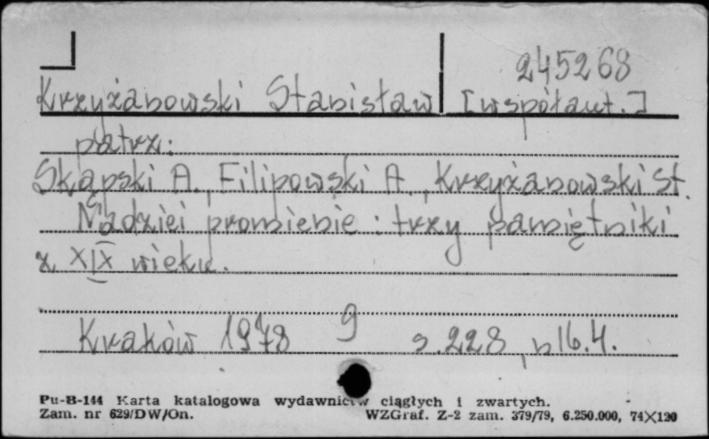 245268
Krzyżanowski Stanisław [współaut.]
patrz:
Skąpski A., Filipowski A., Krzyżanowski St.
Nadziei promienie : trzy pamiętniki
z XIX wieku.
Kraków 1978 9 s. 228, nlb. 4.
Pu-B-144 Karta katalogowa wydawnictw ciągłych i zwartych.
Zam. nr 629/DW/On. WZGraf. Z-2 zam. 379/79, 6.250.000, 74×120